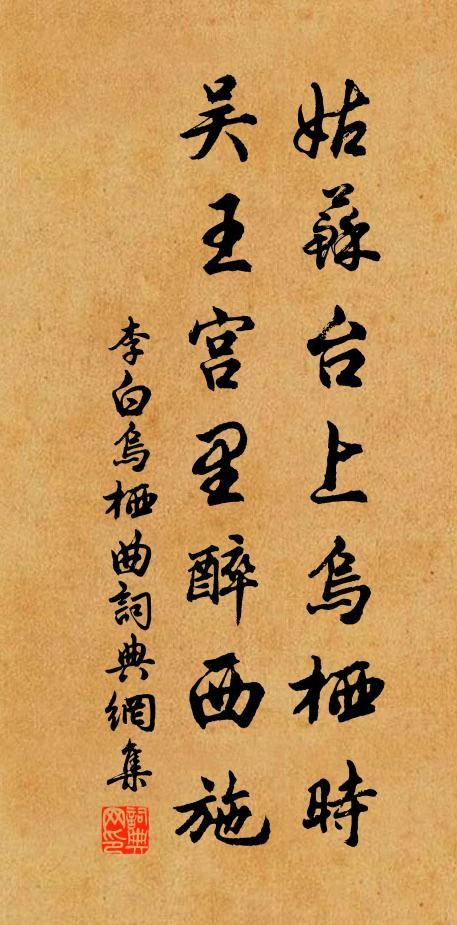 姑蘇台上烏栖時
吴王宫里醉西施
李白烏栖曲詞典網集
詞典
网印